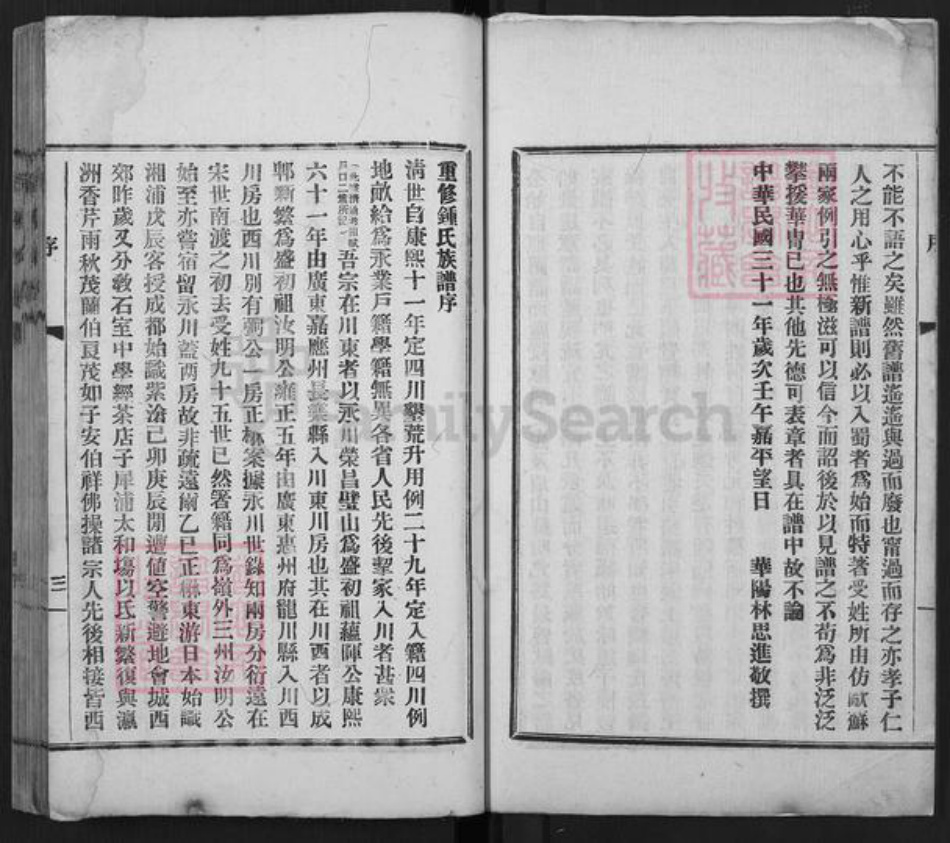 不能不語之矣雖然舊譜遙遙與過而廢也甯過而存之亦孝子仁
人之用心乎惟新譜則必以入蜀者爲始而特著受姓所由仿歐蘇
兩家例引之無極滋可以信今而詔後於以見譜之不苟爲非泛泛
攀援華冑已也其他先德可表章者具在譜中故不論
中華民國三十一年歲次壬午嘉平望日 華陽林思進敬撰
序
重修鍾氏族譜序
清世自康熙十一年定四川墾荒升用例二十九年定入籍四川例
地畝給爲永業戶籍學籍無異各省人民先後挈家入川者甚衆
吾宗在川東者以永川榮昌璧山爲盛初祖蘊暉公康熙
六十一年由廣東嘉應州長樂縣入川東川房也其在川西者以成
郫新繁爲盛初祖汝明公雍正五年由廣東惠州府龍川縣入川西
川房也西川別有弼公一房正楙案據永川世錄知兩房分衍遠在
宋世南渡之初去受姓九十五世已然著籍同爲嶺外三州汝明公
始至亦嘗宿留永川蓋兩房故非疏遠爾乙巳正楙東游日本始識
湘浦戊辰客授成都始識紫滄己卯庚辰間遭値空警避地會城西
郊昨歲又分敎石室中學經茶店子犀浦太和場以氐新繁復與瀛
洲香芹雨秋茂蘭伯良茂如子安伯祥佛操諸宗人先後相接皆西
序
三
FamilySearch